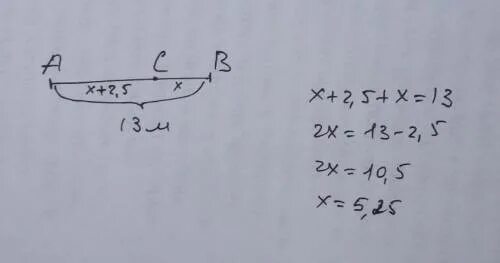 A C B
x+2,5 x
13 м
x+2,5+x=13
2x=13-2,5
2x=10,5
x=5,25